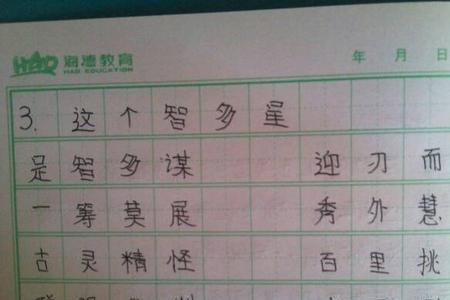 海德教育 年 月 日
HAD EDUCATION
3. 这个智多星
足智多谋 迎刃而
一筹莫展 秀外慧
古灵精怪 百里挑